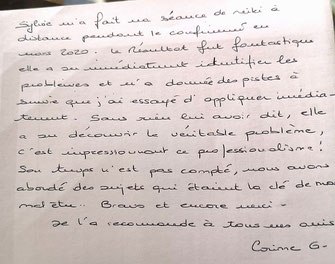 Sylvie m'a fait ma séance de reiki à
distance pendant le confinement en
mars 2020. Le Résultat fut fantastique
elle a su immédiatement identifier les
problèmes et m'a donnée des pistes à
suivre que j'ai essayé d'appliquer immédia-
tement. Sans rien lui avoir dit, elle
a su découvrir le véritable problème,
c'est impressionnant ce professionnalisme !
Son temps n'est pas compté, nous avons
abordé des sujets qui étaient la clé de mon
mal être. Bravo et encore merci -
Je l'a recommande à tous mes amis
Corinne G-